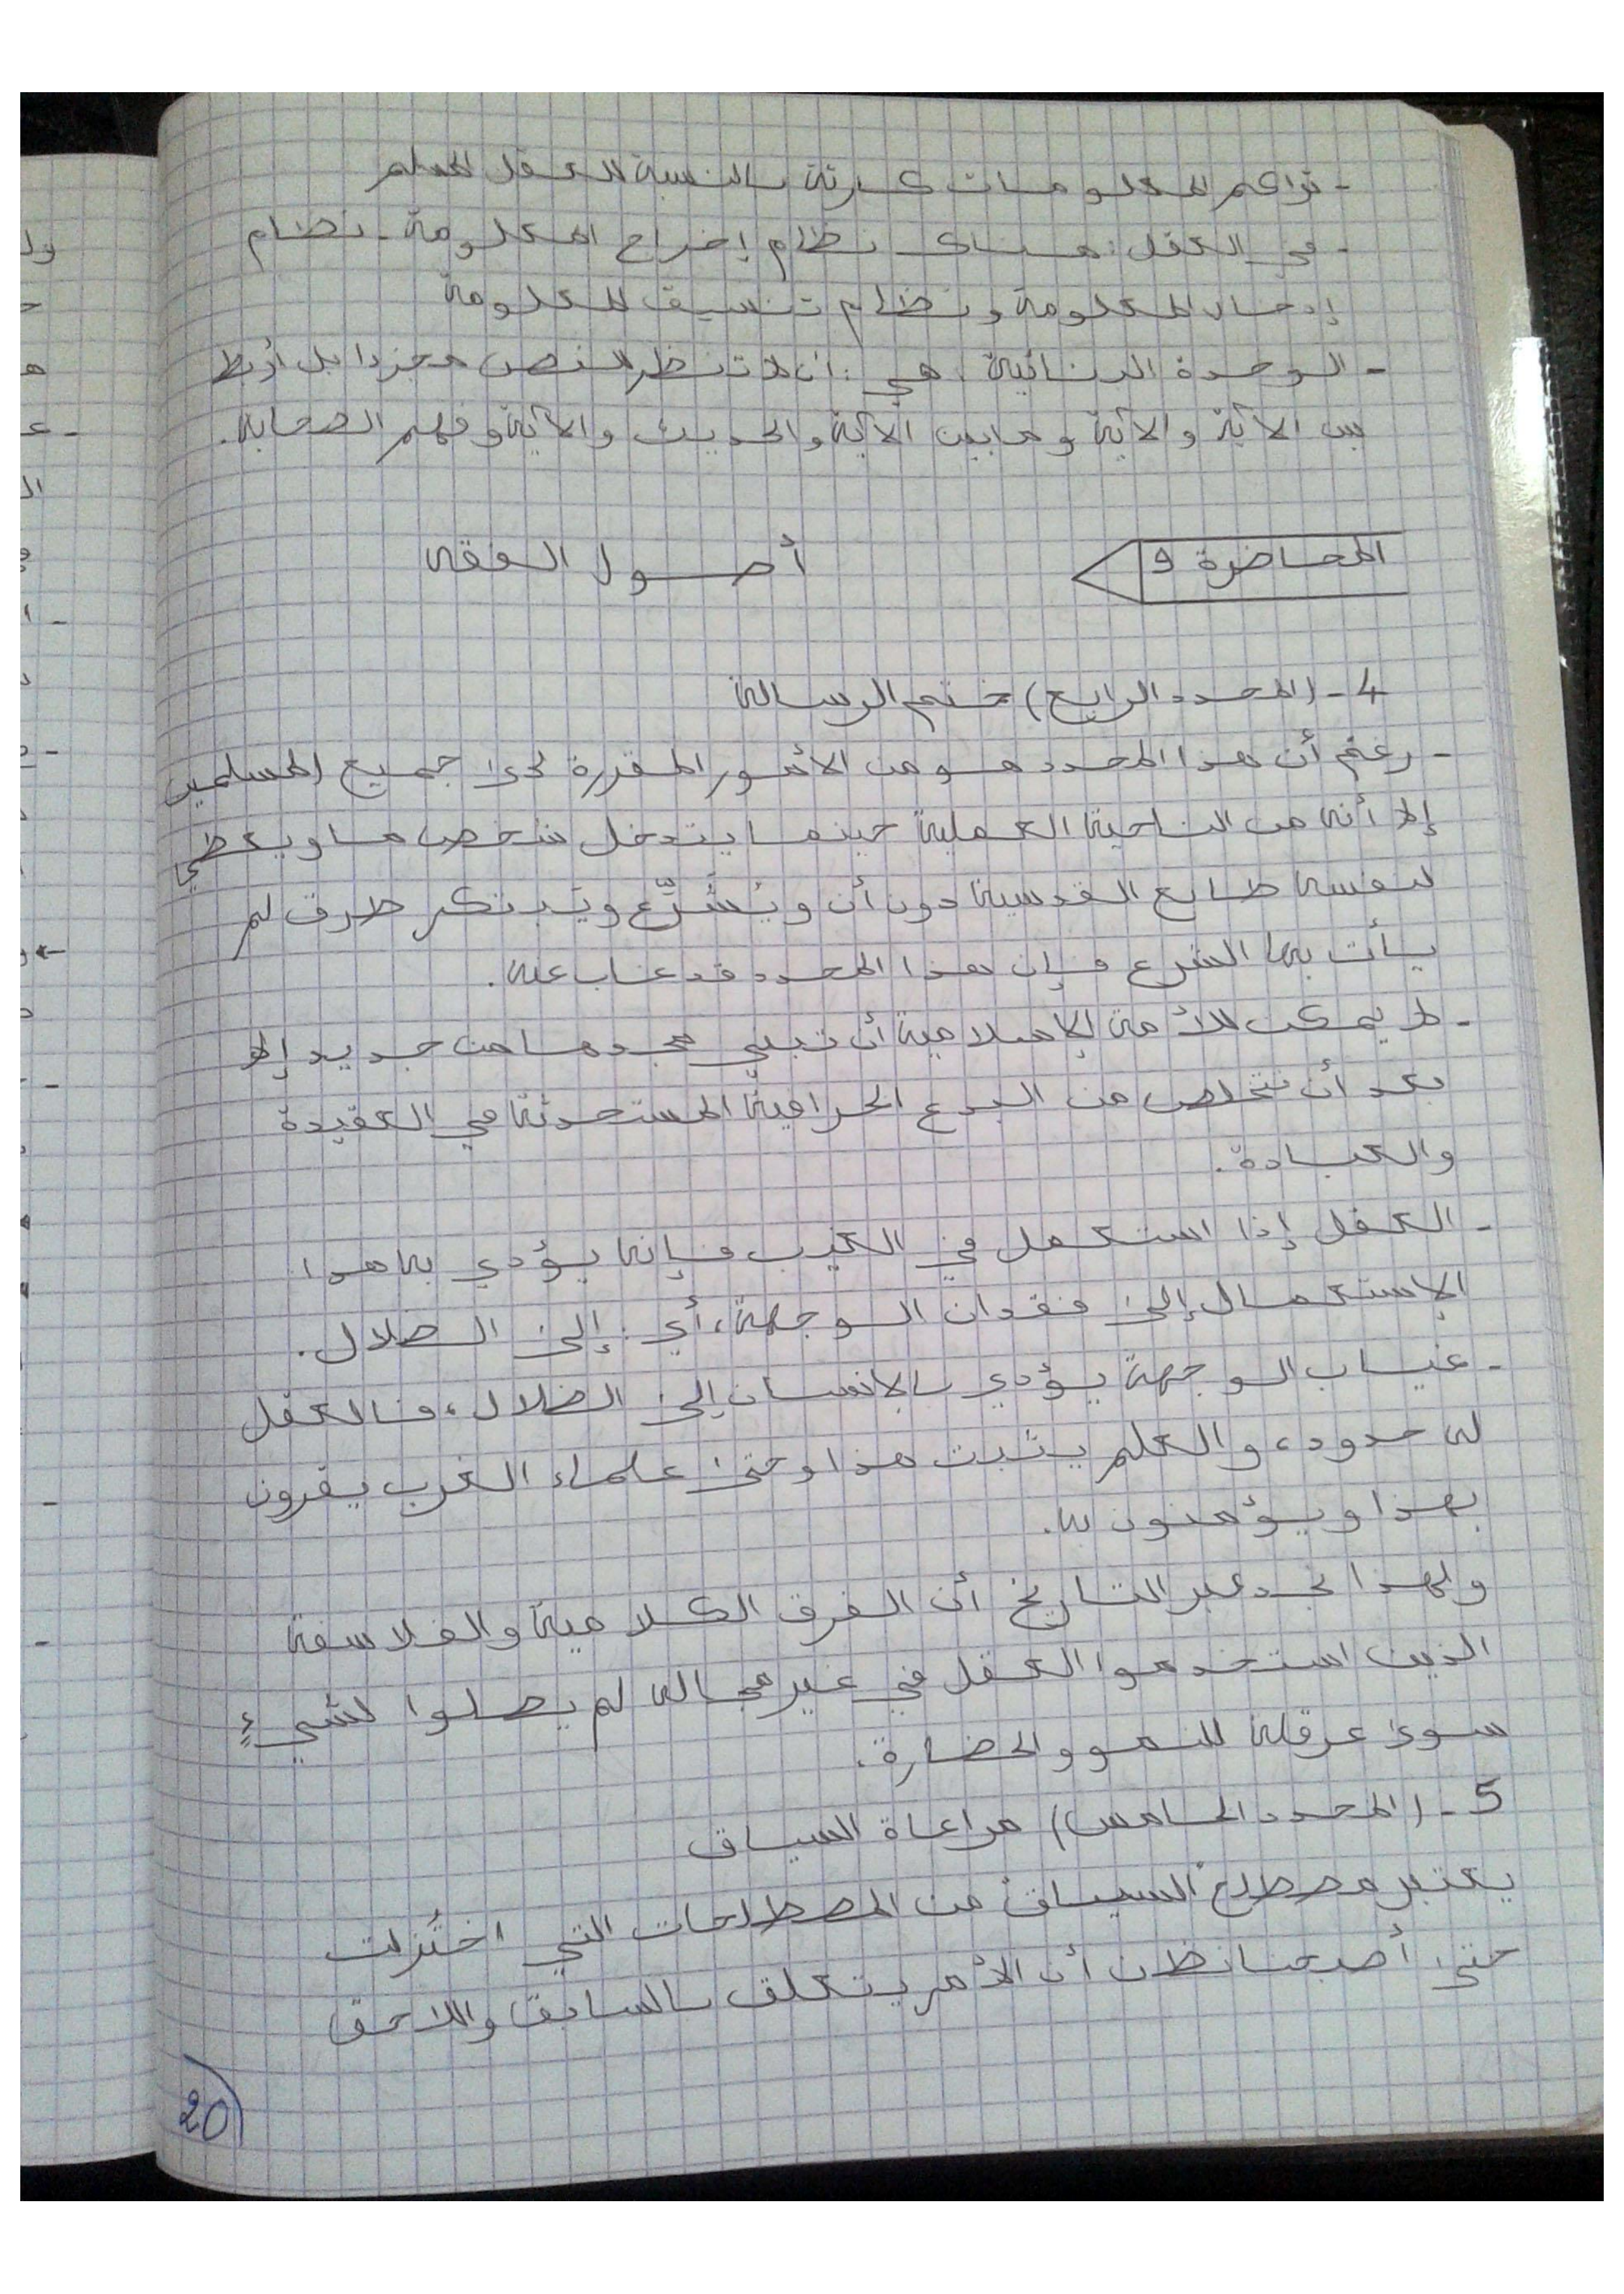 - تراكم المعلومات كارثة بالنسبة للعقل المسلم
- في العقل: هناك نظام إخراج المعلومة - نظام
إدخال المعلومة ونظام تنسيق المعلومة
- الوحدة البنائية هي: أن لا تنظر للنص مجردا بل أربط
بين الآية والآية وما بين الآية والحديث والآية وفهم الصحابة.
المحاضرة 9
أصول الفقه
4 - (المحدد الرابع) ختم الرسالة
- رغم أن هذا المحدد هو من الأمور المقررة لدى جميع المسلمين
إلا أنه من الناحية العملية حينما يتدخل شخص ما ويعطي
لنفسه طابع القدسية دون أن ويُشرِّع ويبتكر طرق لم
يأت بها الشرع فإن هذا المحدد قد غاب عنه.
- لا يمكن للأمة الإسلامية أن تبني مجدها من جديد إلا
بعد أن نتخلص من البدع الخرافية المستحدثة في العقيدة
والعبادة.
- العقل إذا استعمل في الغيب فإنه يؤدي به هذا
الإستعمال إلى فقدان الوجهة، أي إلى الضلال.
- غياب الوجهة يؤدي بالإنسان إلى الضلال، فالعقل
له حدود، والعلم يثبت هذا وحتى علماء الغرب يقرون
بهذا ويؤمنون به.
ولهذا نجد عبر التاريخ أن الفرق الكلامية والفلاسفة
الذين استخدموا العقل في غير مجاله لم يصلوا لشيءٍ
سوى عرقلة للنمو والحضارة.
5 - (المحدد الخامس) مراعاة السياق
يعتبر مصطلح السياق من المصطلحات التي اختُزلت
حتى أصبحنا نظن أن الأمر يتعلق بالسابق واللاحق
20